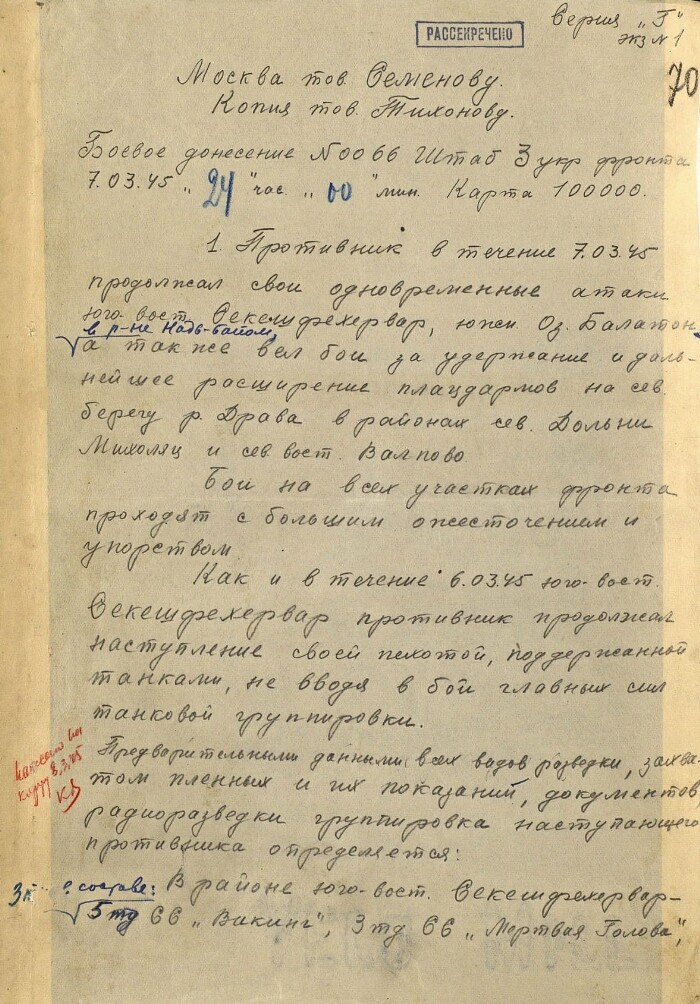 Серия „Г“
РАССЕКРЕЧЕНО
экз №1
70
Москва тов. Семенову.
Копия тов. Тихонову.
Боевое донесение №0066 Штаб 3 укр фронта
7.03.45 „24“ час. „00“ мин. Карта 100000.
1. Противник в течение 7.03.45
продолжал свои одновременные атаки
юго-вост. Секешфехервар, южн. Оз. Балатон,
в р-не Надь-Байом,
а также вел бои за удержание и даль-
нейшее расширение плацдармов на сев.
берегу р. Драва в районах сев. Дольни
Михоляц и сев. вост. Валпово.
Бои на всех участках фронта
проходят с большим ожесточением и
упорством.
Как и в течение 6.03.45 юго-вост.
Секешфехервар противник продолжал
наступление своей пехотой, поддержанной
танками, не вводя в бой главных сил
танковой группировки.
Предварительными данными всех видов разведки, захва-
том пленных и их показаний, документов
радиоразведки группировка наступающего
противника определяется:
в составе: В районе юго-вост. Секешфехервар-
5 тд СС „Викинг“, 3 тд СС „Мертвая Голова“,